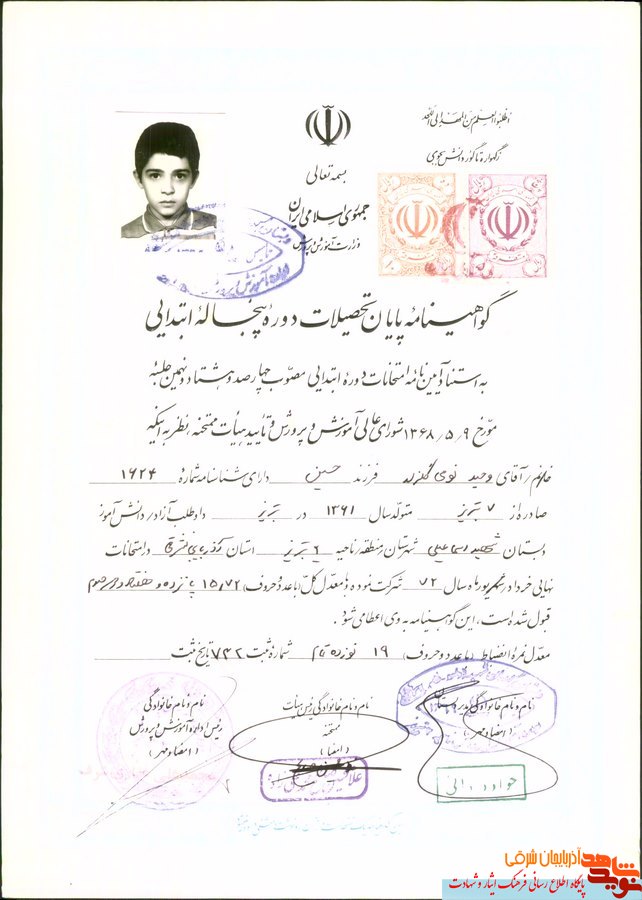 اطلبوا العلم من المهد الی اللحد
زگهواره تا گور دانش بجوی
بسمه تعالی
جمهوری اسلامی ایران
وزارت آموزش و پرورش
گواهینامه پایان تحصیلات دوره پنجساله ابتدایی
به استناد آیین نامه امتحانات دوره ابتدایی مصوب چهارصد و هشتاد و نهمین جلسه
مورخ ۱۳۶۸/۵/۹ شورای عالی آموزش و پرورش و تأیید هیأت ممتحنه، نظر به اینکه
خانم/آقای وحید نوی فرزند حسین دارای شناسنامه شماره ۱۶۲۴
صادره از ۷ تبریز متولد سال ۱۳۶۱ در تبریز داوطلب آزاد/دانش آموز
دبستان شهید شهرستان/منطقه/ناحیه ۲ تبریز استان آذربایجانشرقی در امتحانات
نهایی خرداد/شهریور ماه سال ۷۲ شرکت نموده و با معدل کل (با عدد و حروف) ۱۵/۷۲ پانزده و هفتاد و دو صدم
قبول شده است، این گواهینامه به وی اعطا می شود.
معدل نمره انضباط (با عدد و حروف) ۱۹ نوزده تمام شماره ثبت ۷۴۲ تاریخ ثبت
نام و نام خانوادگی مدیر دبستان
(امضا و مهر)
نام و نام خانوادگی رئیس هیأت
ممتحنه
(امضا)
نام و نام خانوادگی
رئیس اداره آموزش و پرورش
(امضا و مهر)
جواد
نوید شاهد آذربایجان شرقی
پایگاه اطلاع رسانی فرهنگ ایثار و شهادت